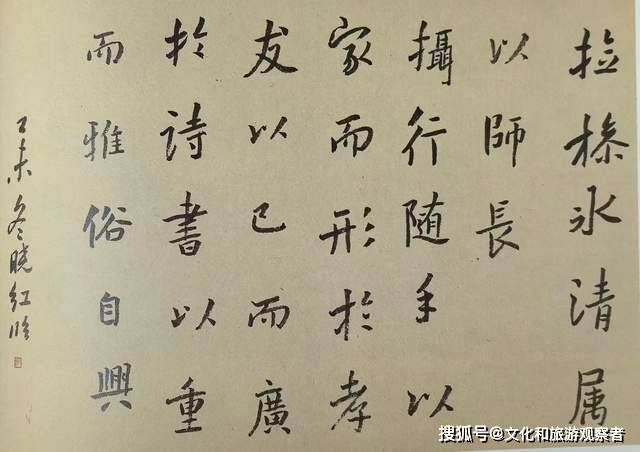 捡操冰清属
以師長
攝行随手以
家而形於孝
友以已而廣
於詩書以重
而雅俗自興
未冬晓红临
搜狐号@文化和旅游观察者